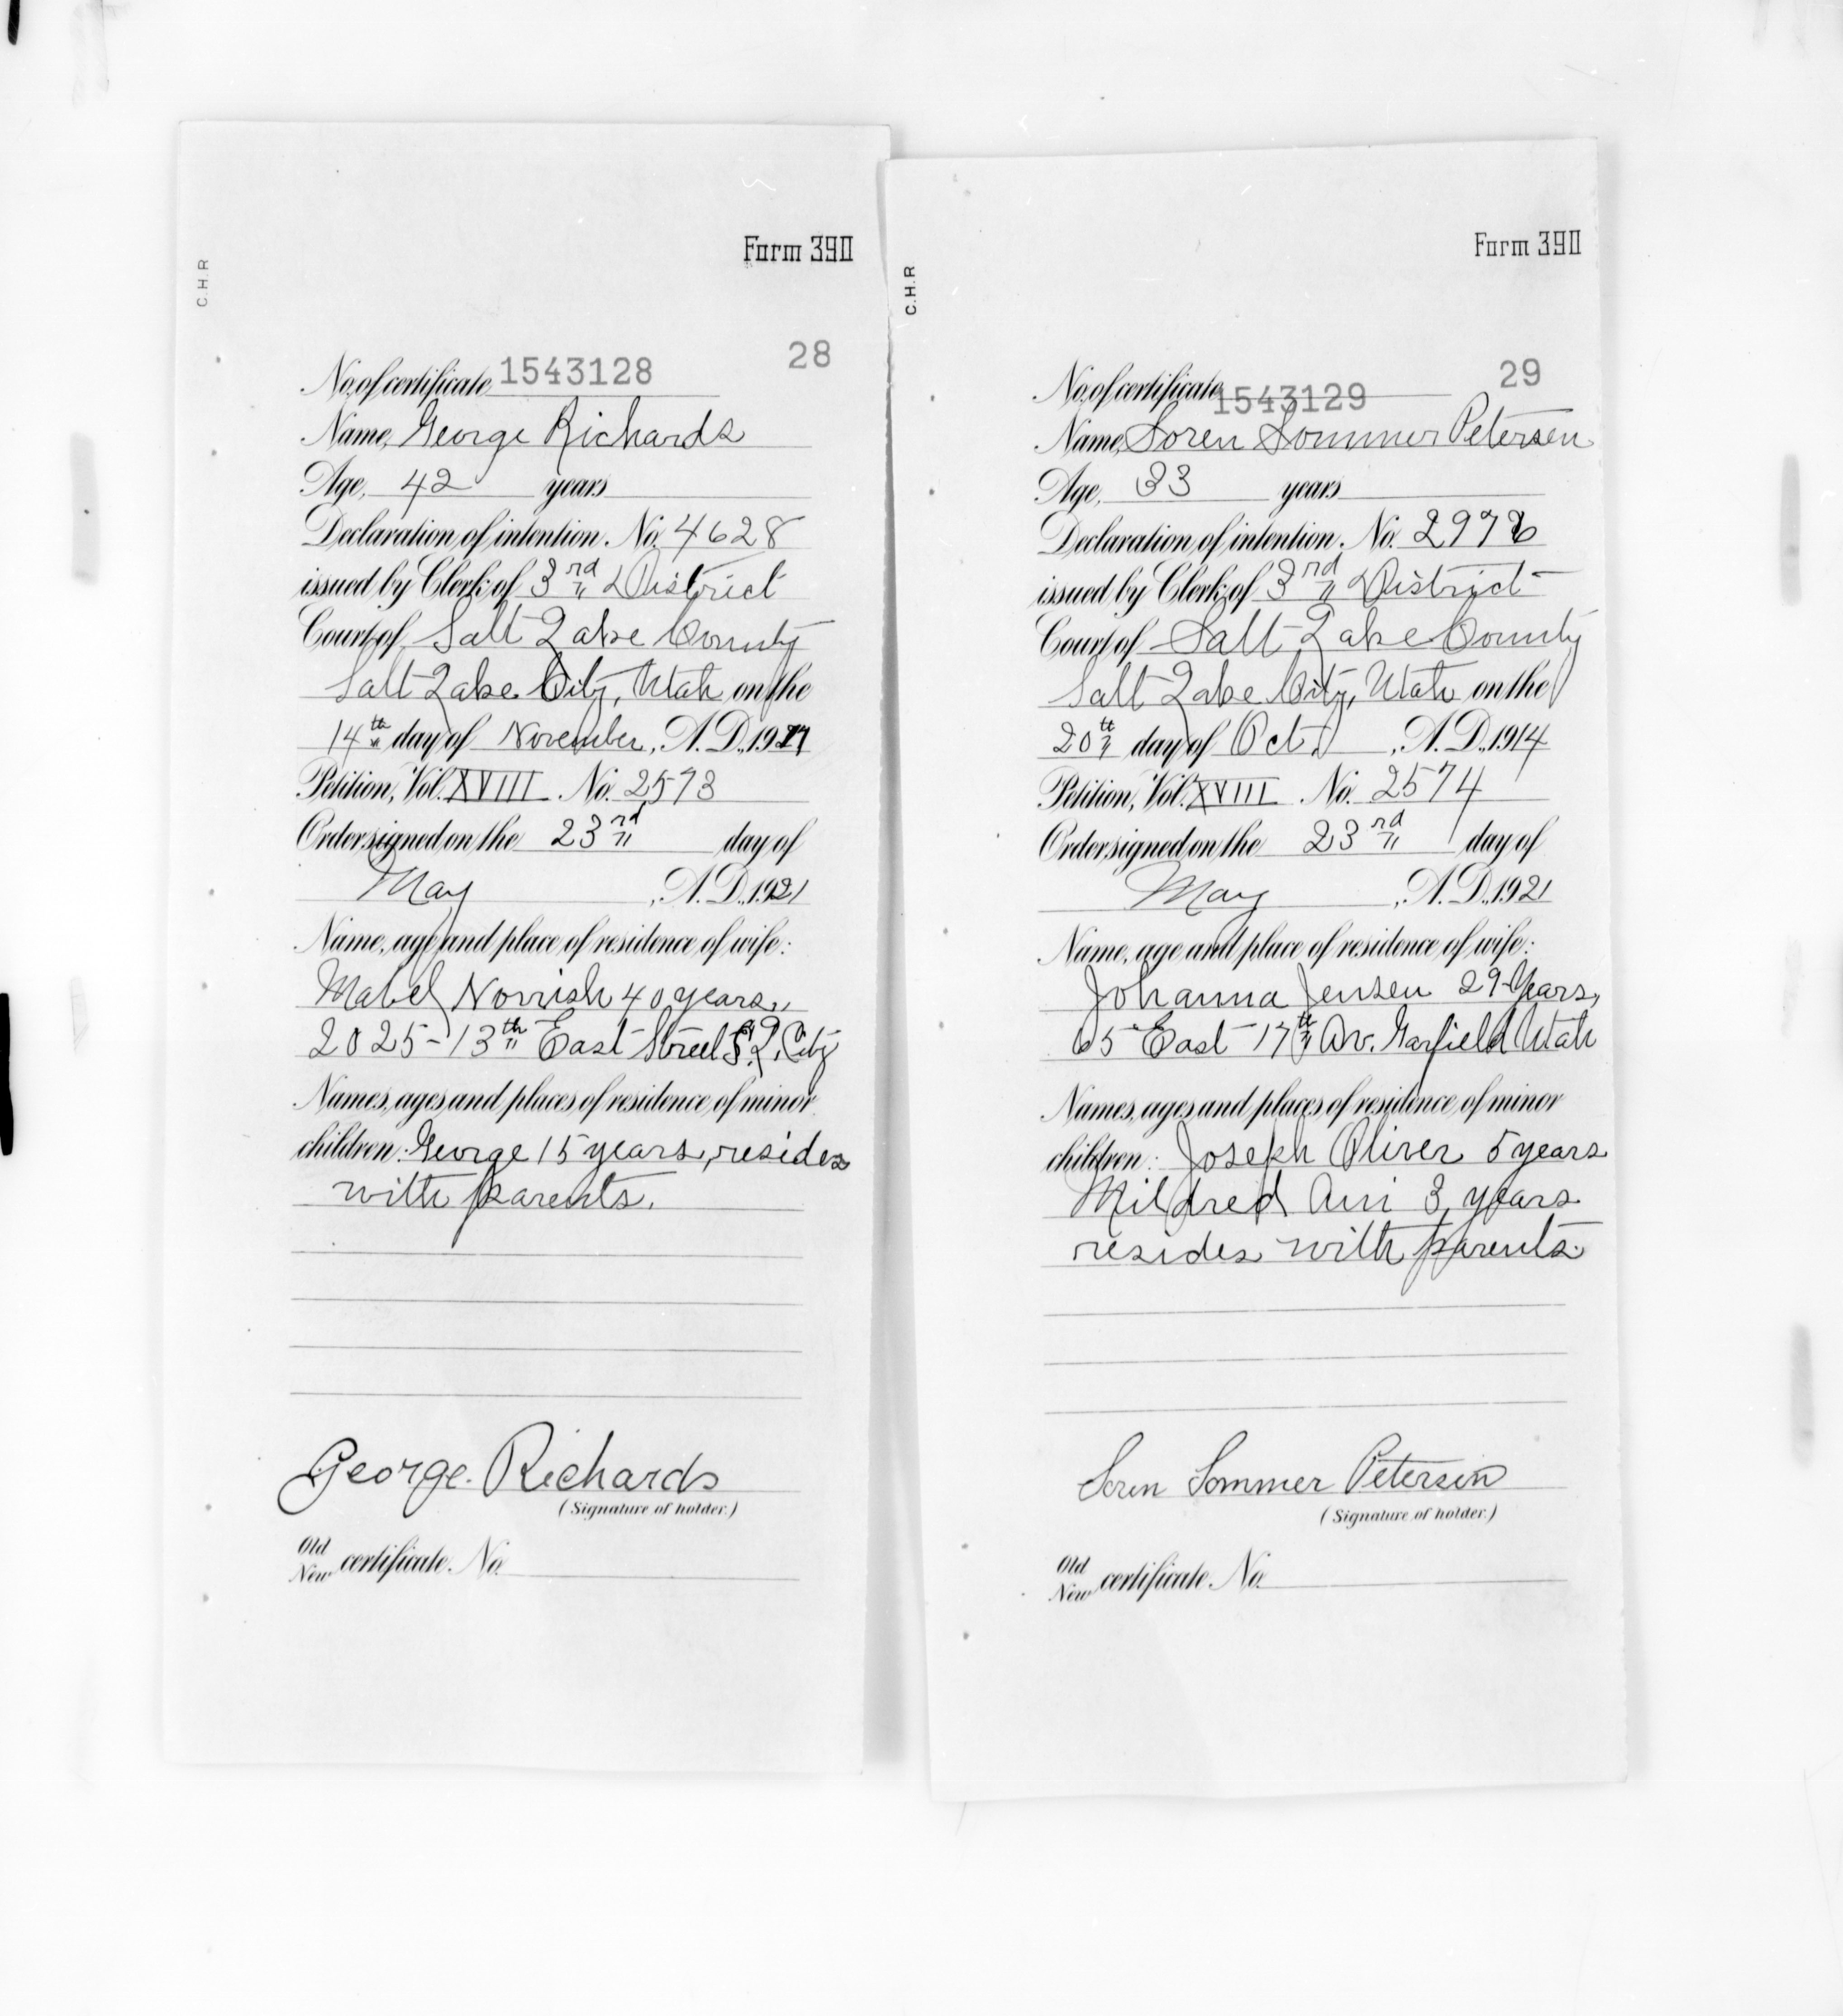 C.H.R
Form 390
28
No. of certificate 1543128
Name, George Richards
Age, 42 years
Declaration of intention. No. 4628
issued by Clerk of 3rd District
Court of Salt Lake County
Salt Lake City, Utah on the
14th day of November, A.D., 1917
Petition, Vol. XVIII No. 2573
Order signed on the 23rd day of
May, A.D., 1921
Name, age and place of residence of wife:
Mabel Norrish 40 years,
2025-13th East Street S. L. City
Names, ages and places of residence of minor
children: George 15 years, resides
with parents.
George Richards
(Signature of holder.)
Old
New certificate. No.
C.H.R
Form 390
29
No. of certificate 1543129
Name, Soren Sommer Petersen
Age, 33 years
Declaration of intention. No. 2976
issued by Clerk of 3rd District
Court of Salt Lake County
Salt Lake City, Utah on the
20th day of Oct., A.D., 1914
Petition, Vol. XVIII No. 2574
Order signed on the 23rd day of
May, A.D., 1921
Name, age and place of residence of wife:
Johanna Jensen 29 Years,
65 East 17th Av. Garfield Utah
Names, ages and places of residence of minor
children: Joseph Oliver 5 years
Mildred 3 years
resides with parents.
Soren Sommer Petersen
(Signature of holder.)
Old
New certificate. No.